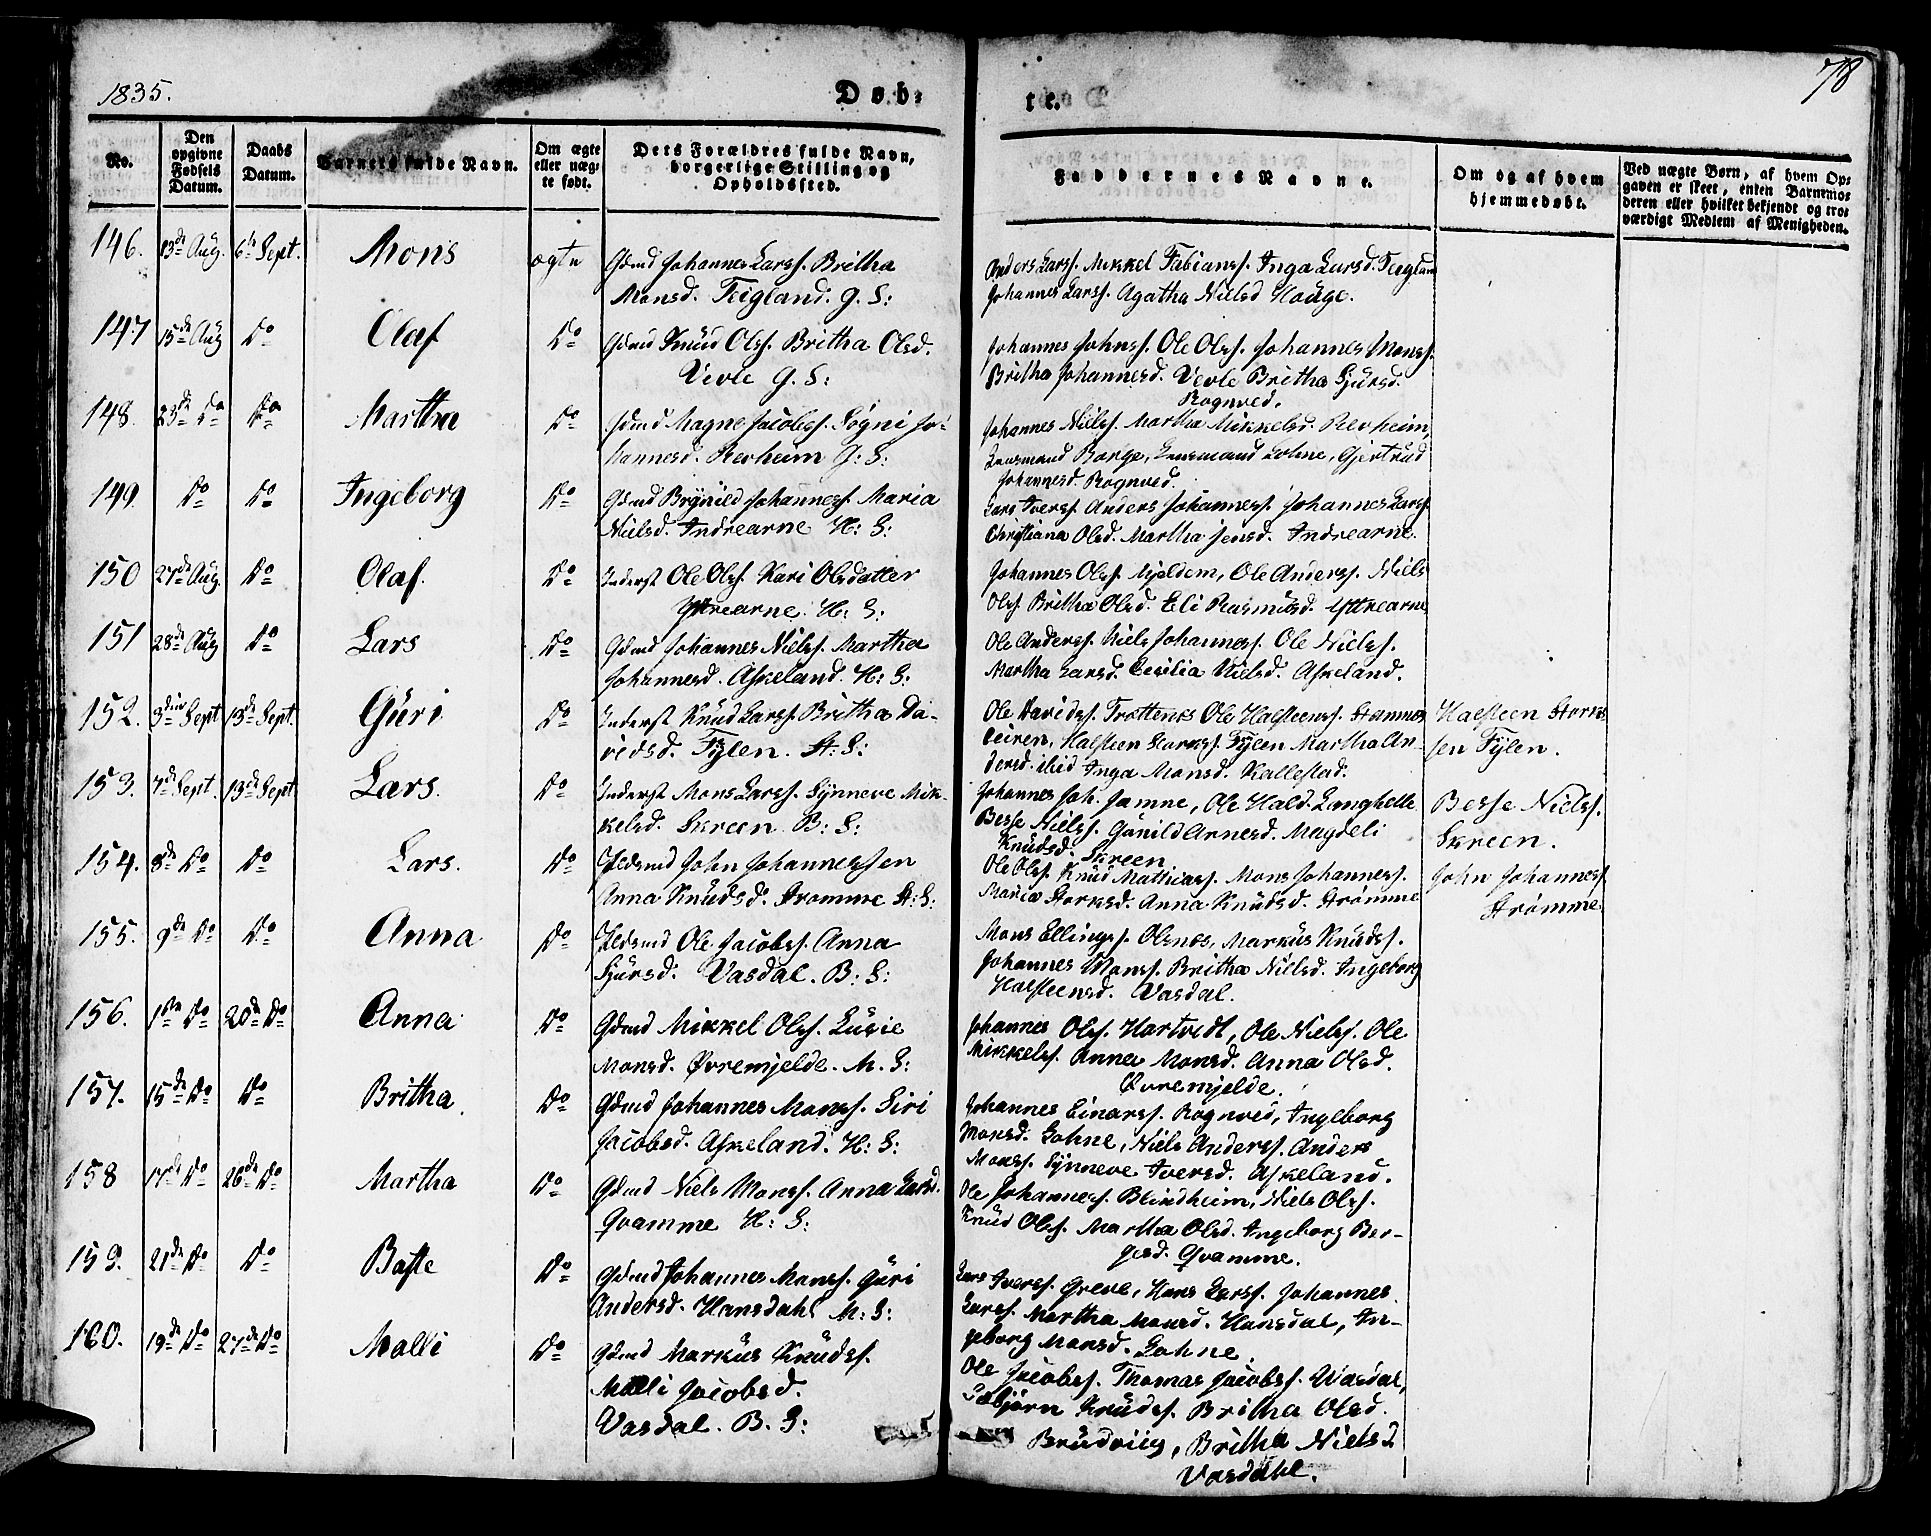 1835.
Døb:
te.
78
No.
Den opgivne Fødsels Datum.
Daabs Datum.
Barnets fulde Navn.
Om ægte eller uæg- te født.
Dets Forældres fulde Navn, borgerlige Stilling og Opholdssted.
Faddernes Navne.
Om og af hvem hjemmedøbt.
Ved uægte Børn, af hvem Op- gaven er skeet, enten Barnemo- deren eller hvilket bekjendt og tro- værdigt Medlem af Menigheden.
146. 13de Aug. 6te Sept. Mons ægte Gdmd Johannes Larss. Britha
Monsd. Teigland. G. S:
Anders Larss. Mikkel Fabianss. Inga Larsd. Teigland
Johannes Larss. Agatha Nielsd Houge.
147 15de Aug Do Olaf Do Gdmd Knud Olss. Britha Olsd.
Vevle G. S:
Johannes Johnss. Ole Olss. Johannes Monss.
Britha Johannesd. Vevle Britha Sjursd.
Rognved.
148. 23de Do Do Martha Do Gdmd Magne Jacobss. Sygni Jo-
hannesd. Revheim G: S:
Johannes Nielss. Martha Mikkelsd. Revheim,
Lensmand Borge, Lensmand Lohne, Gjertrud
Johannesd. Rognved.
149. Do Do Ingeborg Do Gdmd Brynild Johanness. Maria
Nielsd. Indrearne H: S:
Lars Iverss. Anders Johanness. Johannes Larss.
Christiana Olsd. Martha Jensd. Indrearne.
150 27de Aug. Do Olaf. Do Inderst Ole Olss. Kari Olsdatter
Yttrearne. H: S:
Johannes Olss. Mjeldem, Ole Anderss. Niels
Olss. Britha Olsd. Eli Rasmusd. Yttrearne
151 28de Aug Do Lars Do Gdmd Johannes Nielss. Martha
Johannesd. Askeland. H: S:
Ole Anderss. Niels Johanness. Ole Nielss.
Martha Larsd. Cecilia Nielsd. Askeland.
152. 3die Sept 13de Sept. Guri Do Inderst Knud Larss. Britha Da-
vidsd. Fylen. St: S:
Ole Davidss. Trottenes Ole Halsteenss. Stamnes
Leiren, Halsteen Storkss. Fylen Martha An-
dersd. ibid Inga Monsd. Kallestad.
Halsteen Stork-
sen Fylen.
153. 7de Sept. 13de Sept Lars. Do Inderst Mons Larss. Synneve Mik-
kelsd. Skreen. B: S:
Johannes Joh. Jamne, Ole Hald. Langhelle
Besse Nielss. Gunild Arnesd. Magdeli
Knudsd. Skreen
Besse Nielss.
Skreen.
154. 8de Do Do Lars. Do Pldsmd John Johannessen
Anna Knudsd. Strømme St: S:
Ole Olss. Knud Mathiass. Mons Johanness.
Maria Storksd. Anna Knudsd. Strømme
John Johanness.
Strømme.
155. 9de Do Do Anna Do Pldsmd Ole Jacobss. Anna
Sjursd. Vasdal. B: S:
Mons Ellingss. Olsnes, Markus Knudss.
Johannes Monss. Britha Nielsd. Ingeborg
Halsteensd. Vasdal.
156. 1ste Do 20de Do Anna Do Gdmd Mikkel Olss. Lusie
Monsd. Øvremjelde. M. S:
Johannes Olss. Hartvedt, Ole Nielss. Ole
Mikkelss. Anna Monsd. Anna Olsd.
Øvremjelde.
157. 15de Do Do Britha Do Gdmd Johannes Monss. Siri
Jacobsd. Askeland. H: S:
Johannes Einarss. Rognved, Ingeborg
Monsd. Lohne, Niels Anderss. Anders
Monss. Synneve Iversd. Askeland.
158 17de Do 26de Do Martha Do Gdmd Niels Monss. Anna Larsd.
Qvamme H: S:
Ole Johanness. Blindheim, Niels Olss.
Knud Olss. Martha Olsd. Ingeborg Ber-
gesd. Qvamme.
159. 21de Do Do Baste Do Gdmd Johannes Monss. Guri
Andersd. Hansdahl M: S:
Lars Iverss. Greve, Hans Larss. Johannes
Larss. Martha Monsd. Hansdal, In-
geborg Monsd. Lohne.
160. 19de Do 27de Do Malli Do Gdmd Markus Knudss.
Malli Jacobsd.
Vasdal. B. S:
Ole Jacobss. Thomas Jacobss. Vasdal,
Knudss. Britha Olsd.
Brudviig, Britha Nielsd
Vasdahl.